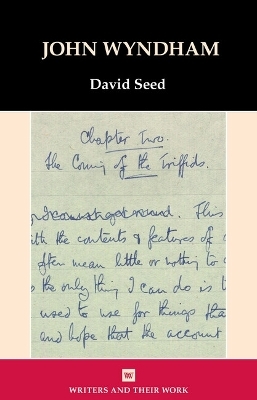 JOHN WYNDHAM
David Seed
Chapter Two.
The Coming of the Triffids.
record. This
with the contents & features of
often mean little or nothing to
the only thing I can do is
used to use for things tha
and hope that the account
WRITERS AND THEIR WORK